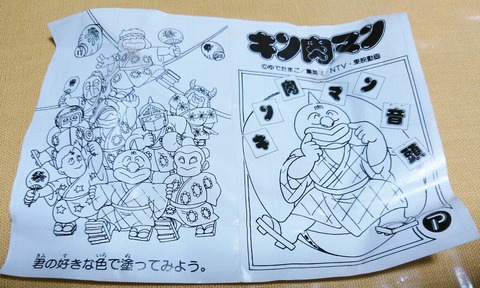 キン肉マン
©ゆでたまご／集英社・NTV・東映動画
キン肉マン音頭
ア
君の好きな色で塗ってみよう。